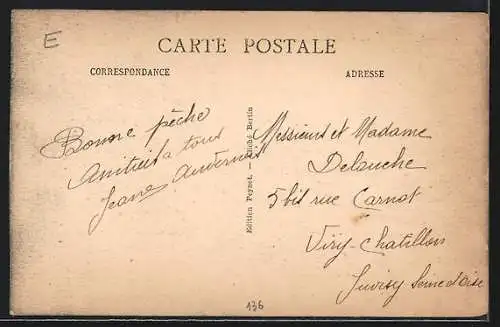 E
CARTE POSTALE
CORRESPONDANCE
ADRESSE
Bonne pêche
Amitiés à tous
Jeane
Edition Peynet. - Cliché Bertin
Messieurs et Madame
Delauche
5 bis rue Carnot
Viry-Chatillon
Juvisy Seine et Oise
136